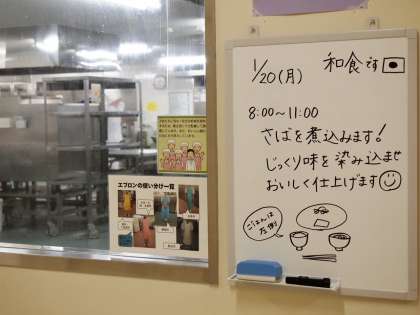 1/20(月) 和食です
8:00～11:00
さばを煮込みます!
じっくり味を染み込ませ
おいしく仕上げます
ごはんは
左側
エプロンの使い分け一覧